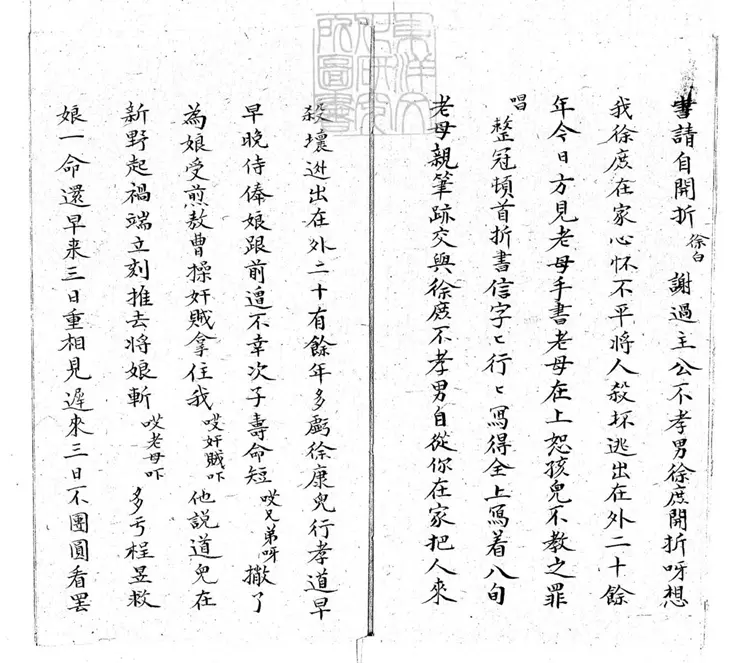 書請自開折 徐白 謝過主公不孝男徐庶開折呀想
我徐庶在家心怀不平将人殺坏逃出在外二十餘
年今日方見老母手書老母在上恕孩兒不教之罪
唱 整冠頓首折書信字〻行〻寫得全上寫着八旬
老母親筆跡交與徐庶不孝男自從你在家把人來
殺壞迯出在外二十有餘年多虧徐康兒行孝道早
早晚侍俸娘跟前遭不幸次子壽命短 哎兄弟呀 撇了
為娘受煎敖曹操奸賊拿住我 哎奸賊吓 他説道兒在
新野起禍端立刻推去将娘斬 哎老母吓 多亏桯昱救
娘一命還早来三日重相見遲來三日不團圓看罢
東洋文化研究所圖書